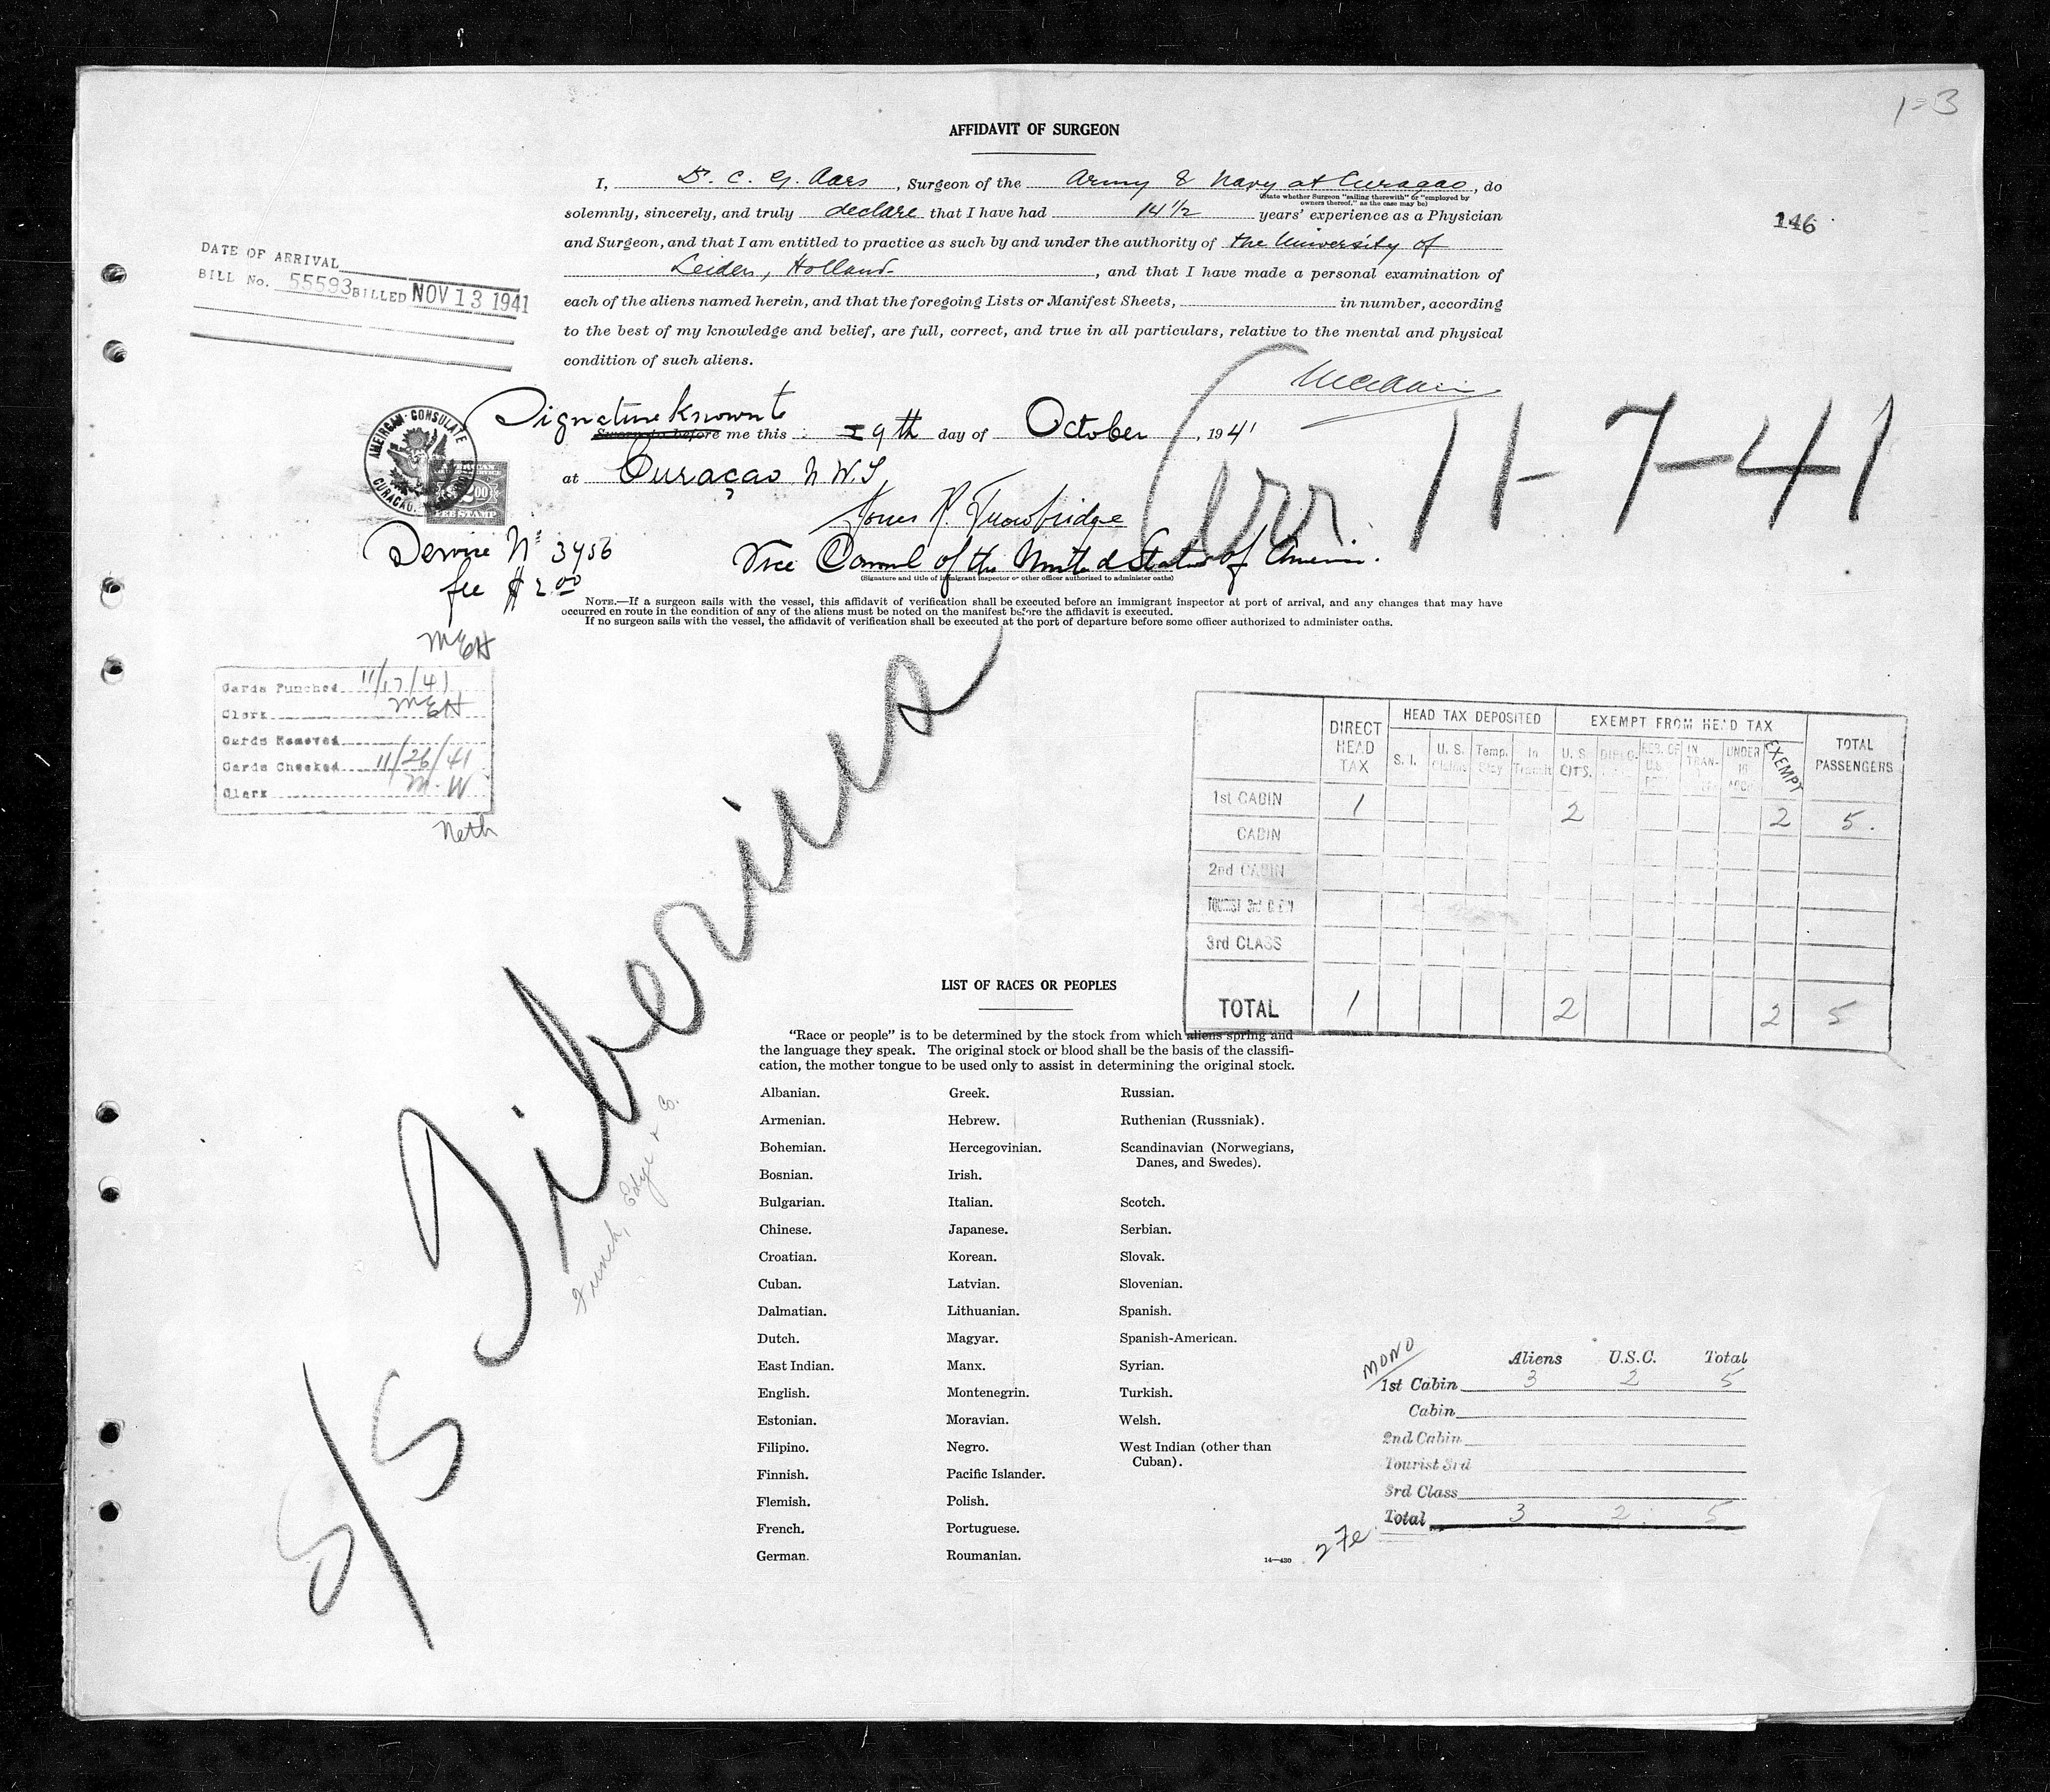 1-3
AFFIDAVIT OF SURGEON
I, Dr. C. G. Aars, Surgeon of the Army & Navy at Curaçao, do
(State whether Surgeon "sailing therewith" or "employed by
owners thereof," as the case may be)
solemnly, sincerely, and truly declare that I have had 14 1/2 years' experience as a Physician
146
and Surgeon, and that I am entitled to practice as such by and under the authority of the University of
Leiden, Holland, and that I have made a personal examination of
each of the aliens named herein, and that the foregoing Lists or Manifest Sheets, in number, according
to the best of my knowledge and belief, are full, correct, and true in all particulars, relative to the mental and physical
condition of such aliens.
DATE OF ARRIVAL
BILL No. 55593 BILLED NOV 13 1941
Signature known to
Sworn to before me this 29th day of October, 1941
at Curaçao N.W.I.
Arr 11-7-41
AMERICAN CONSULATE
CURACAO,
2.00
FEE STAMP
Trowbridge
Vice Consul of the United States of America.
(Signature and title of immigrant inspector or other officer authorized to administer oaths)
Service No 3456
fee $2.00
NOTE.—If a surgeon sails with the vessel, this affidavit of verification shall be executed before an immigrant inspector at port of arrival, and any changes that may have
occurred en route in the condition of any of the aliens must be noted on the manifest before the affidavit is executed.
If no surgeon sails with the vessel, the affidavit of verification shall be executed at the port of departure before some officer authorized to administer oaths.
MEH
Cards Punched 11/17/41
Clerk MEH
Cards Removed
Cards Checked 11/26/41
Clerk M.W
Neth
S/S Tiberius
Funch, Edye & Co.
DIRECT HEAD TAX HEAD TAX DEPOSITED EXEMPT FROM HEAD TAX TOTAL PASSENGERS
S. I. U. S. Claims Temp. Stay In Transit U. S. CITS. DIPLO. RES. OF U.S. IN TRAN- UNDER 16 EXEMPT
1st CABIN 1 2 2 5.
CABIN
2nd CABIN
TOURIST 3rd CABIN
3rd CLASS
TOTAL 1 2 2 5
LIST OF RACES OR PEOPLES
"Race or people" is to be determined by the stock from which aliens spring and
the language they speak. The original stock or blood shall be the basis of the classifi-
cation, the mother tongue to be used only to assist in determining the original stock.
Albanian.
Armenian.
Bohemian.
Bosnian.
Bulgarian.
Chinese.
Croatian.
Cuban.
Dalmatian.
Dutch.
East Indian.
English.
Estonian.
Filipino.
Finnish.
Flemish.
French.
German.
Greek.
Hebrew.
Hercegovinian.
Irish.
Italian.
Japanese.
Korean.
Latvian.
Lithuanian.
Magyar.
Manx.
Montenegrin.
Moravian.
Negro.
Pacific Islander.
Polish.
Portuguese.
Roumanian.
Russian.
Ruthenian (Russniak).
Scandinavian (Norwegians,
Danes, and Swedes).
Scotch.
Serbian.
Slovak.
Slovenian.
Spanish.
Spanish-American.
Syrian.
Turkish.
Welsh.
West Indian (other than
Cuban).
14—430
MONO
Aliens U.S.C. Total
1st Cabin 3 2 5
Cabin
2nd Cabin
Tourist 3rd
3rd Class
Total 3 2 5